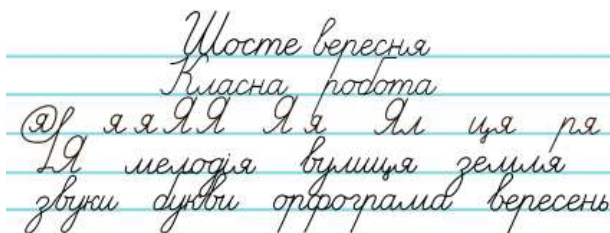 Шосте вересня
Класна робота
я я я Я Я Я я Ял ця ря
Я мелодія вулиця земля
звуки букви орфограма вересень